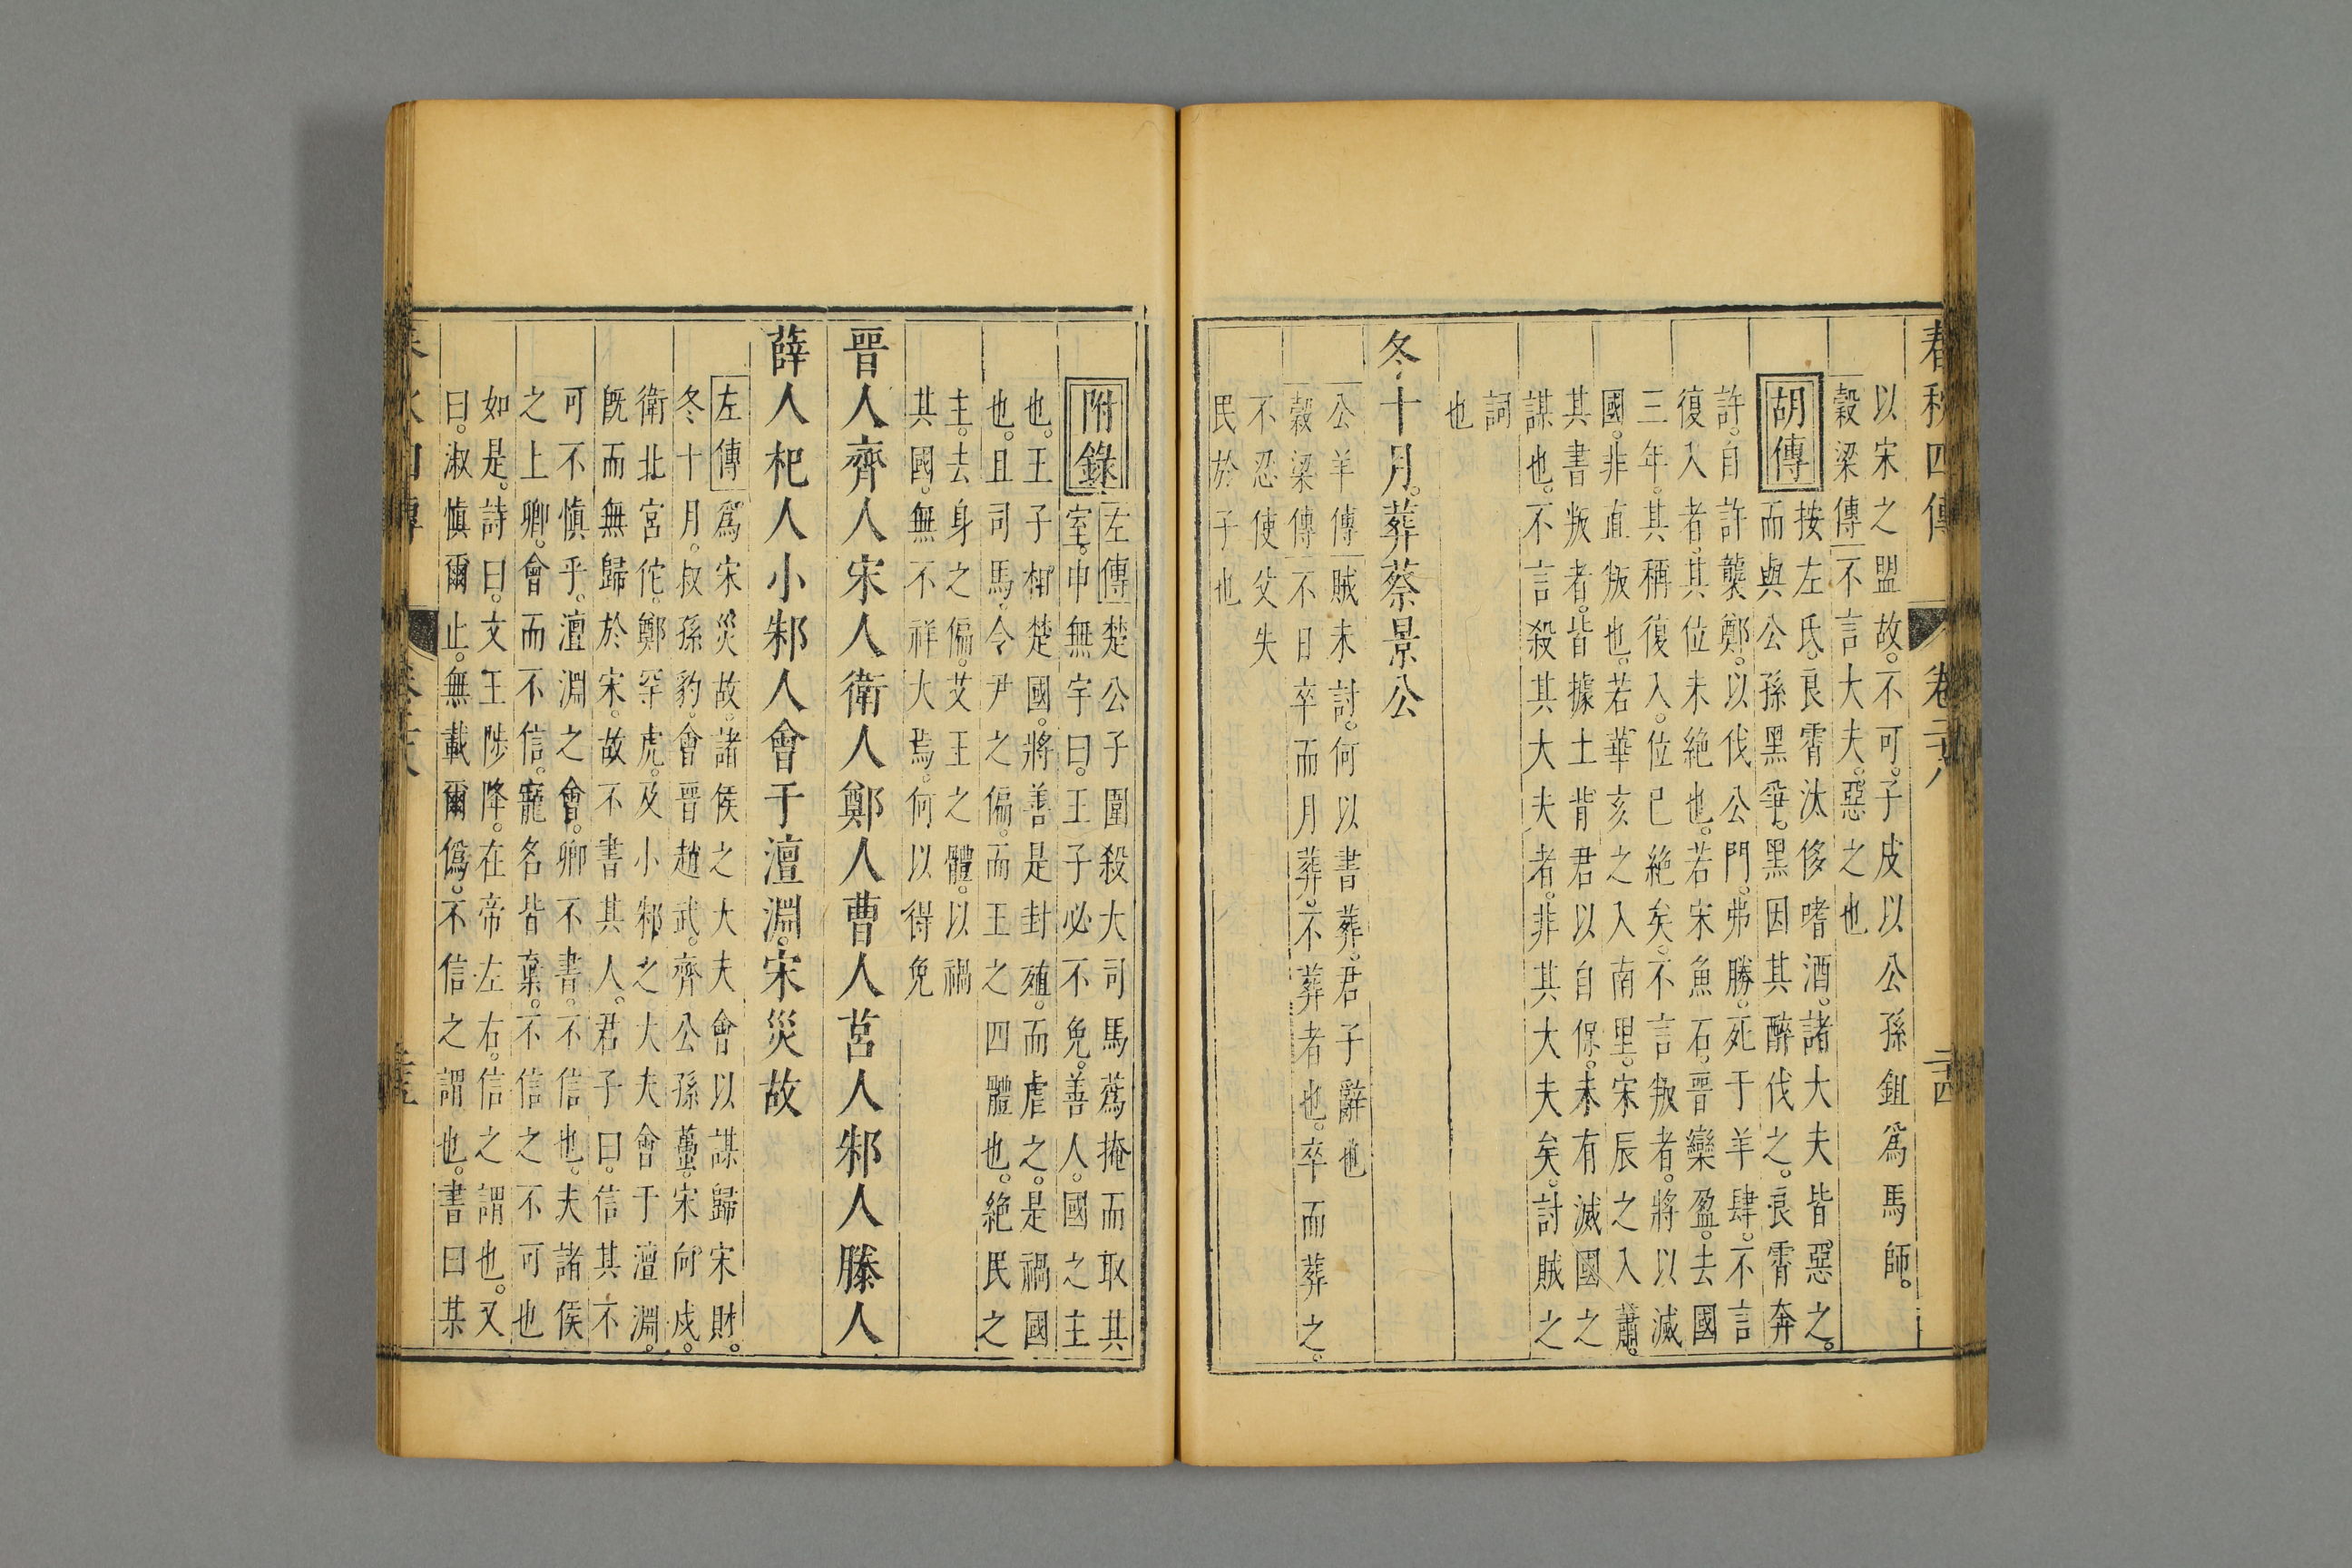 春秋四傳 卷二十八 二十四
以宋之盟故。不可。子皮以公孫鉏爲馬師。
穀梁傳 不言大夫。惡之也
胡傳 按左氏。良霄汰侈嗜酒。諸大夫皆惡之。
而與公孫黑爭。黑因其醉伐之。良霄奔
許。自許襲鄭。以伐公門。弗勝。死于羊肆。不言
復入者。其位未絶也。若宋魚石。晉欒盈。去國
三年。其稱復入。位已絶矣。不言叛者。將以滅
國。非直叛也。若華亥之入南里。宋辰之入蕭。
其書叛者。皆據土背君以自保。未有滅國之
謀也。不言殺其大夫者。非其大夫矣。討賊之
詞
也
冬。十月。葬蔡景公
公羊傳 賊未討。何以書葬。君子辭也
穀梁傳 不日卒而月葬。不葬者也。卒而葬之。
不忍使父失
民於子也
附錄 左傳 楚公子圍殺大司馬蔿掩而取其
室。申無宇曰。王子必不免。善人。國之主
也。王子相楚國。將善是封殖。而虐之。是禍國
也。且司馬。令尹之偏。而王之四體也。絶民之
主。去身之偏。艾王之體。以禍
其國。無不祥大焉。何以得免
晉人齊人宋人衛人鄭人曹人莒人邾人滕人
薛人杞人小邾人會于澶淵。宋災故
左傳 爲宋災故。諸侯之大夫會以謀歸宋財。
冬十月。叔孫豹。會晉趙武。齊公孫蠆。宋向戌。
衛北宮佗。鄭罕虎。及小邾之大夫會于澶淵。
既而無歸於宋。故不書其人。君子曰。信其不
可不慎乎。澶淵之會。卿不書。不信也。夫諸侯
之上卿。會而不信。寵名皆棄。不信之不可也
如是。詩曰。文王陟降。在帝左右。信之謂也。又
曰。淑慎爾止。無載爾僞。不信之謂也。書曰某